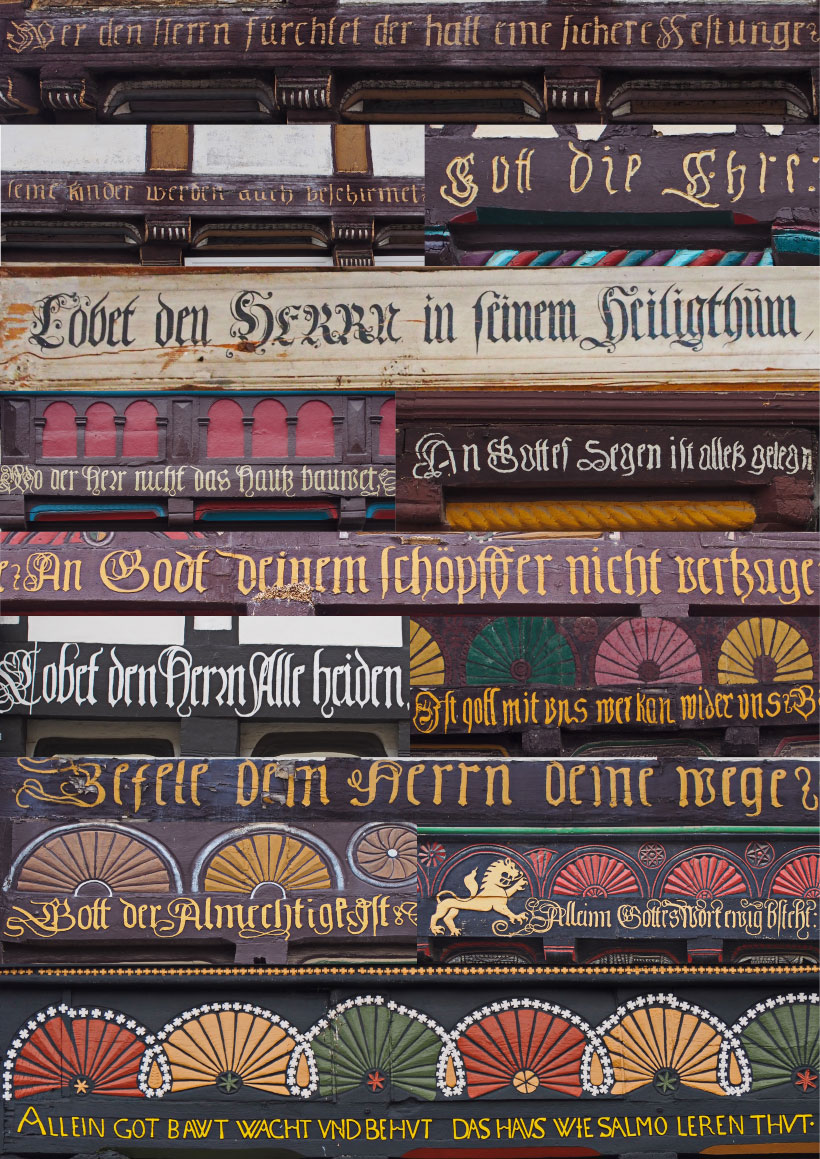 Wer den Herrn fürchtet der hatt eine sichere Festunge
seine kinder werden auch beschirmet
Gott die Ehre:
Lobet den HERRN in seinem Heiligthüm,
Wo der Herr nicht das Hautz bauwet
An Gottes Segen ist alleß gelegn
An Godt deinem schöpffer nicht vertzage
Lobet den Herrn Alle heiden
Ist gott mit vns wer kan wider vns
Befele dem Herrn deine wege
Gott der Almechtige Ist
Alleinn Gottes Wort ewig bsteht:
ALLEIN GOT BAWT WACHT VND BEHVT DAS HAVS WIE SALMO LEREN THVT·